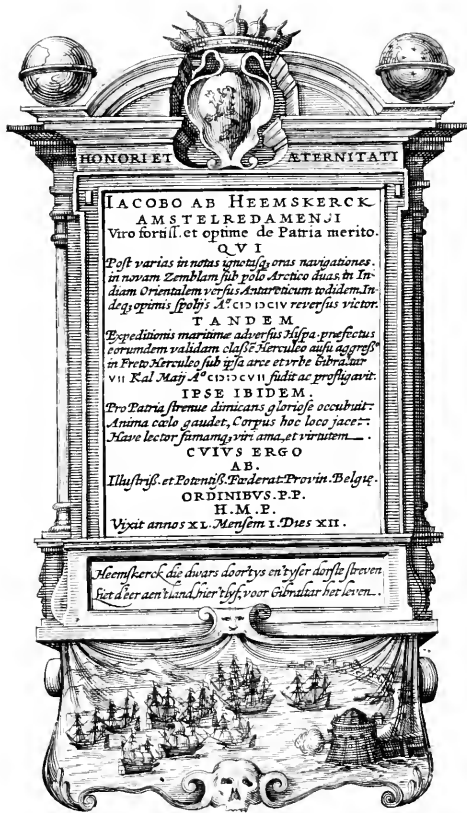 HONORI ET ÆTERNITATI
IACOBO AB HEEMSKERCK
AMSTELREDAMENSI
Viro fortiss. et optime de Patria merito.
QVI
Post varias in notas ignotasq, oras navigationes.
in novam Zemblam sub polo Arctico duas, in In-
diam Orientalem versus Antarcticum todidem. In-
deq, opimis spolijs Aº. CIƆIƆCIV reversus victor.
TANDEM
Expeditionis maritimæ adversus Hispa. præfectus
eorumdem validam classe Herculeo ausu aggressº
in Freto Herculeo sub ipsa arce et vrbe Gibraltar
VII Kal Maij Aº CIƆIƆCVII fudit ac profligavit.
IPSE IBIDEM.
Pro Patria strenue dimicans gloriose occubuit:
Anima cœlo gaudet, Corpus hoc loco jacet:
Have lector famamq, viri ama, et virtutem.
CVIVS ERGO
AB.
Illustriss. et Potentiss. Fœderat. Provin. Belgię.
ORDINIBVS. P.P.
H.M.P.
Vixit annos XL. Mensem I. Dies XII.
Heemskerck die dwars door tys en tyser dorste streven
Liet d'eer aen t land, hier t lyf, voor Gibraltar het leven.